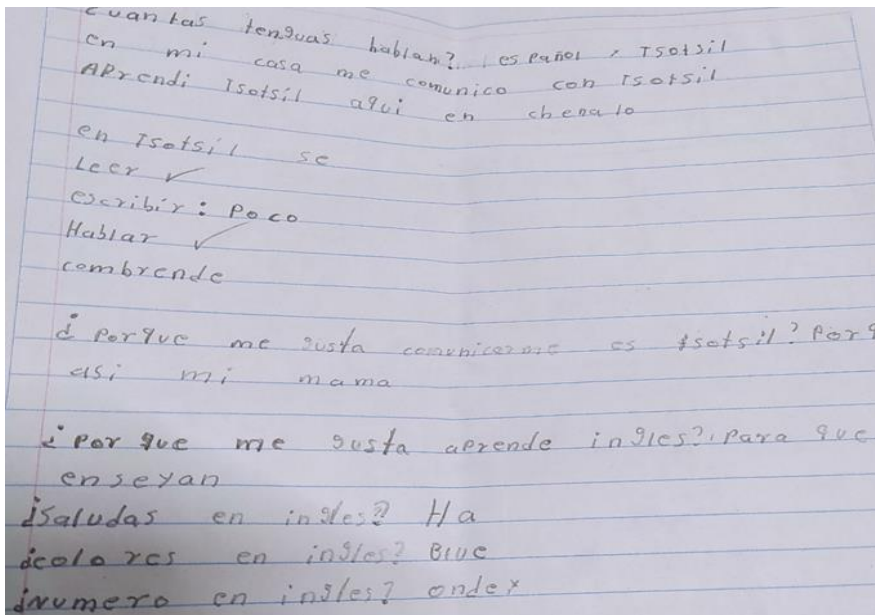 cuantas lenguas hablan? español y Tsotsil
en mi casa me comunico con Tsotsil
APrendi Tsotsil aqui en chenalo
en Tsotsil se
Leer ✓
escribir: Poco
Hablar ✓
combrende
¿ Porque me gusta comunicarme es tsotsil? Porq
asi mi mama
¿Por que me gusta aprende ingles? Para que
enseyan
¿Saludas en ingles? Ha
¿colores en ingles? Blue
¿Numero en ingles? ondex